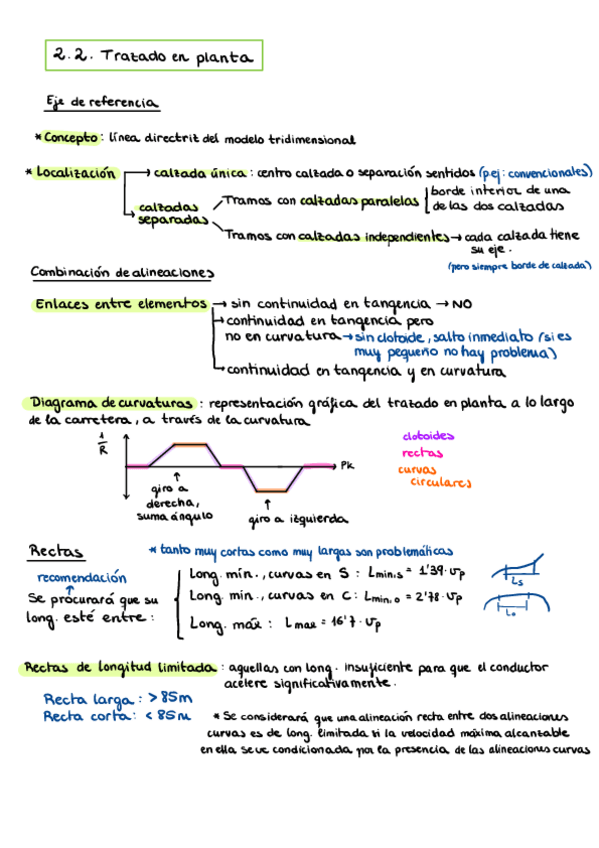 2.2. Tratado en planta
Eje de referencia
* Concepto: línea directriz del modelo tridimensional
* Localización → calzada única: centro calzada o separación sentidos (pej: convencionales)
calzadas separadas
Tramos con calzadas paralelas
borde interior de una
de las dos calzadas
Tramos con calzadas independientes → cada calzada tiene
su eje.
(pero siempre borde de calzada)
Combinación de alineaciones
Enlaces entre elementos → sin continuidad en tangencia → NO
→ continuidad en tangencia pero
no en curvatura → sin clotoide, salto inmediato (si es
muy pequeño no hay problema)
→ continuidad en tangencia y en curvatura
Diagrama de curvaturas: representación gráfica del trazado en planta a lo largo
de la carretera, a través de la curvatura
1/R
PK
giro a
derecha,
suma ángulo
giro a izquierda
clotoides
rectas
curvas
circulares
Rectas
* tanto muy cortas como muy largas son problemáticas
recomendación
Se procurará que su
long. esté entre:
Long. mín., curvas en S: Lmin,s = 1'39·Vp
Long. mín., curvas en C: Lmin,o = 2'78·Vp
Long. máx: Lmax = 16'7·Vp
Ls
Lo
Rectas de longitud limitada: aquellas con long. insuficiente para que el conductor
acelere significativamente.
Recta larga: > 85m
Recta corta: < 85m
* Se considerará que una alineación recta entre dos alineaciones
curvas es de long. limitada si la velocidad máxima alcanzable
en ella se ve condicionada por la presencia de las alineaciones curvas